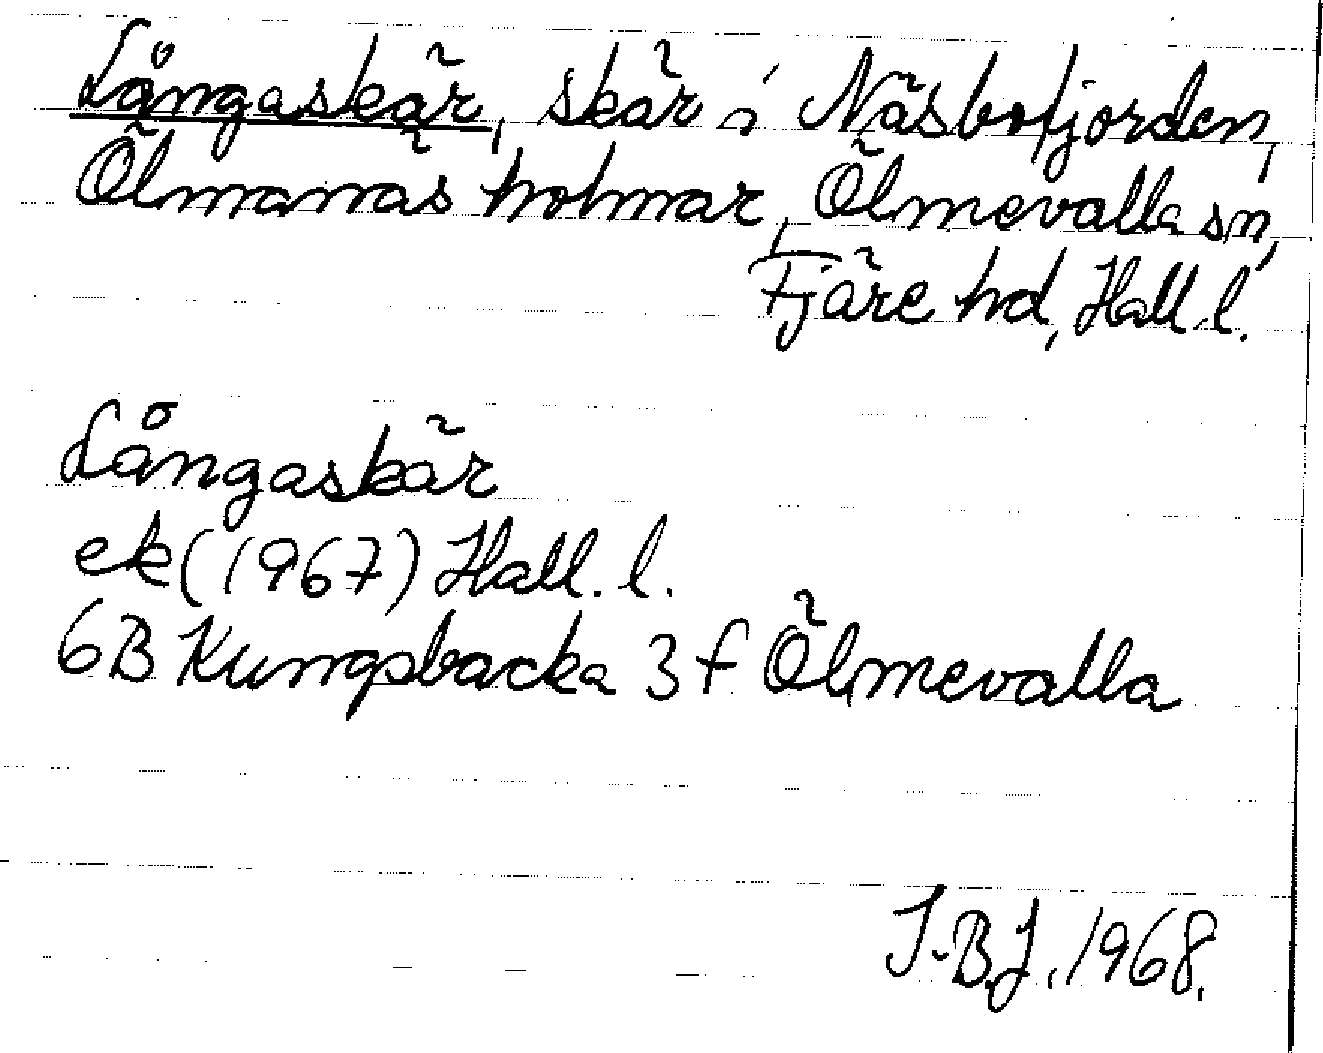 Långaskär, skär i Näsbofjorden,
Ölmanas holmar, Ölmevalla sn,
Fjäre hd, Hall. l.
Långaskär
ek (1967) Hall. l.
6B Kungsbacka 3 f Ölmevalla
I-B.J. 1968.